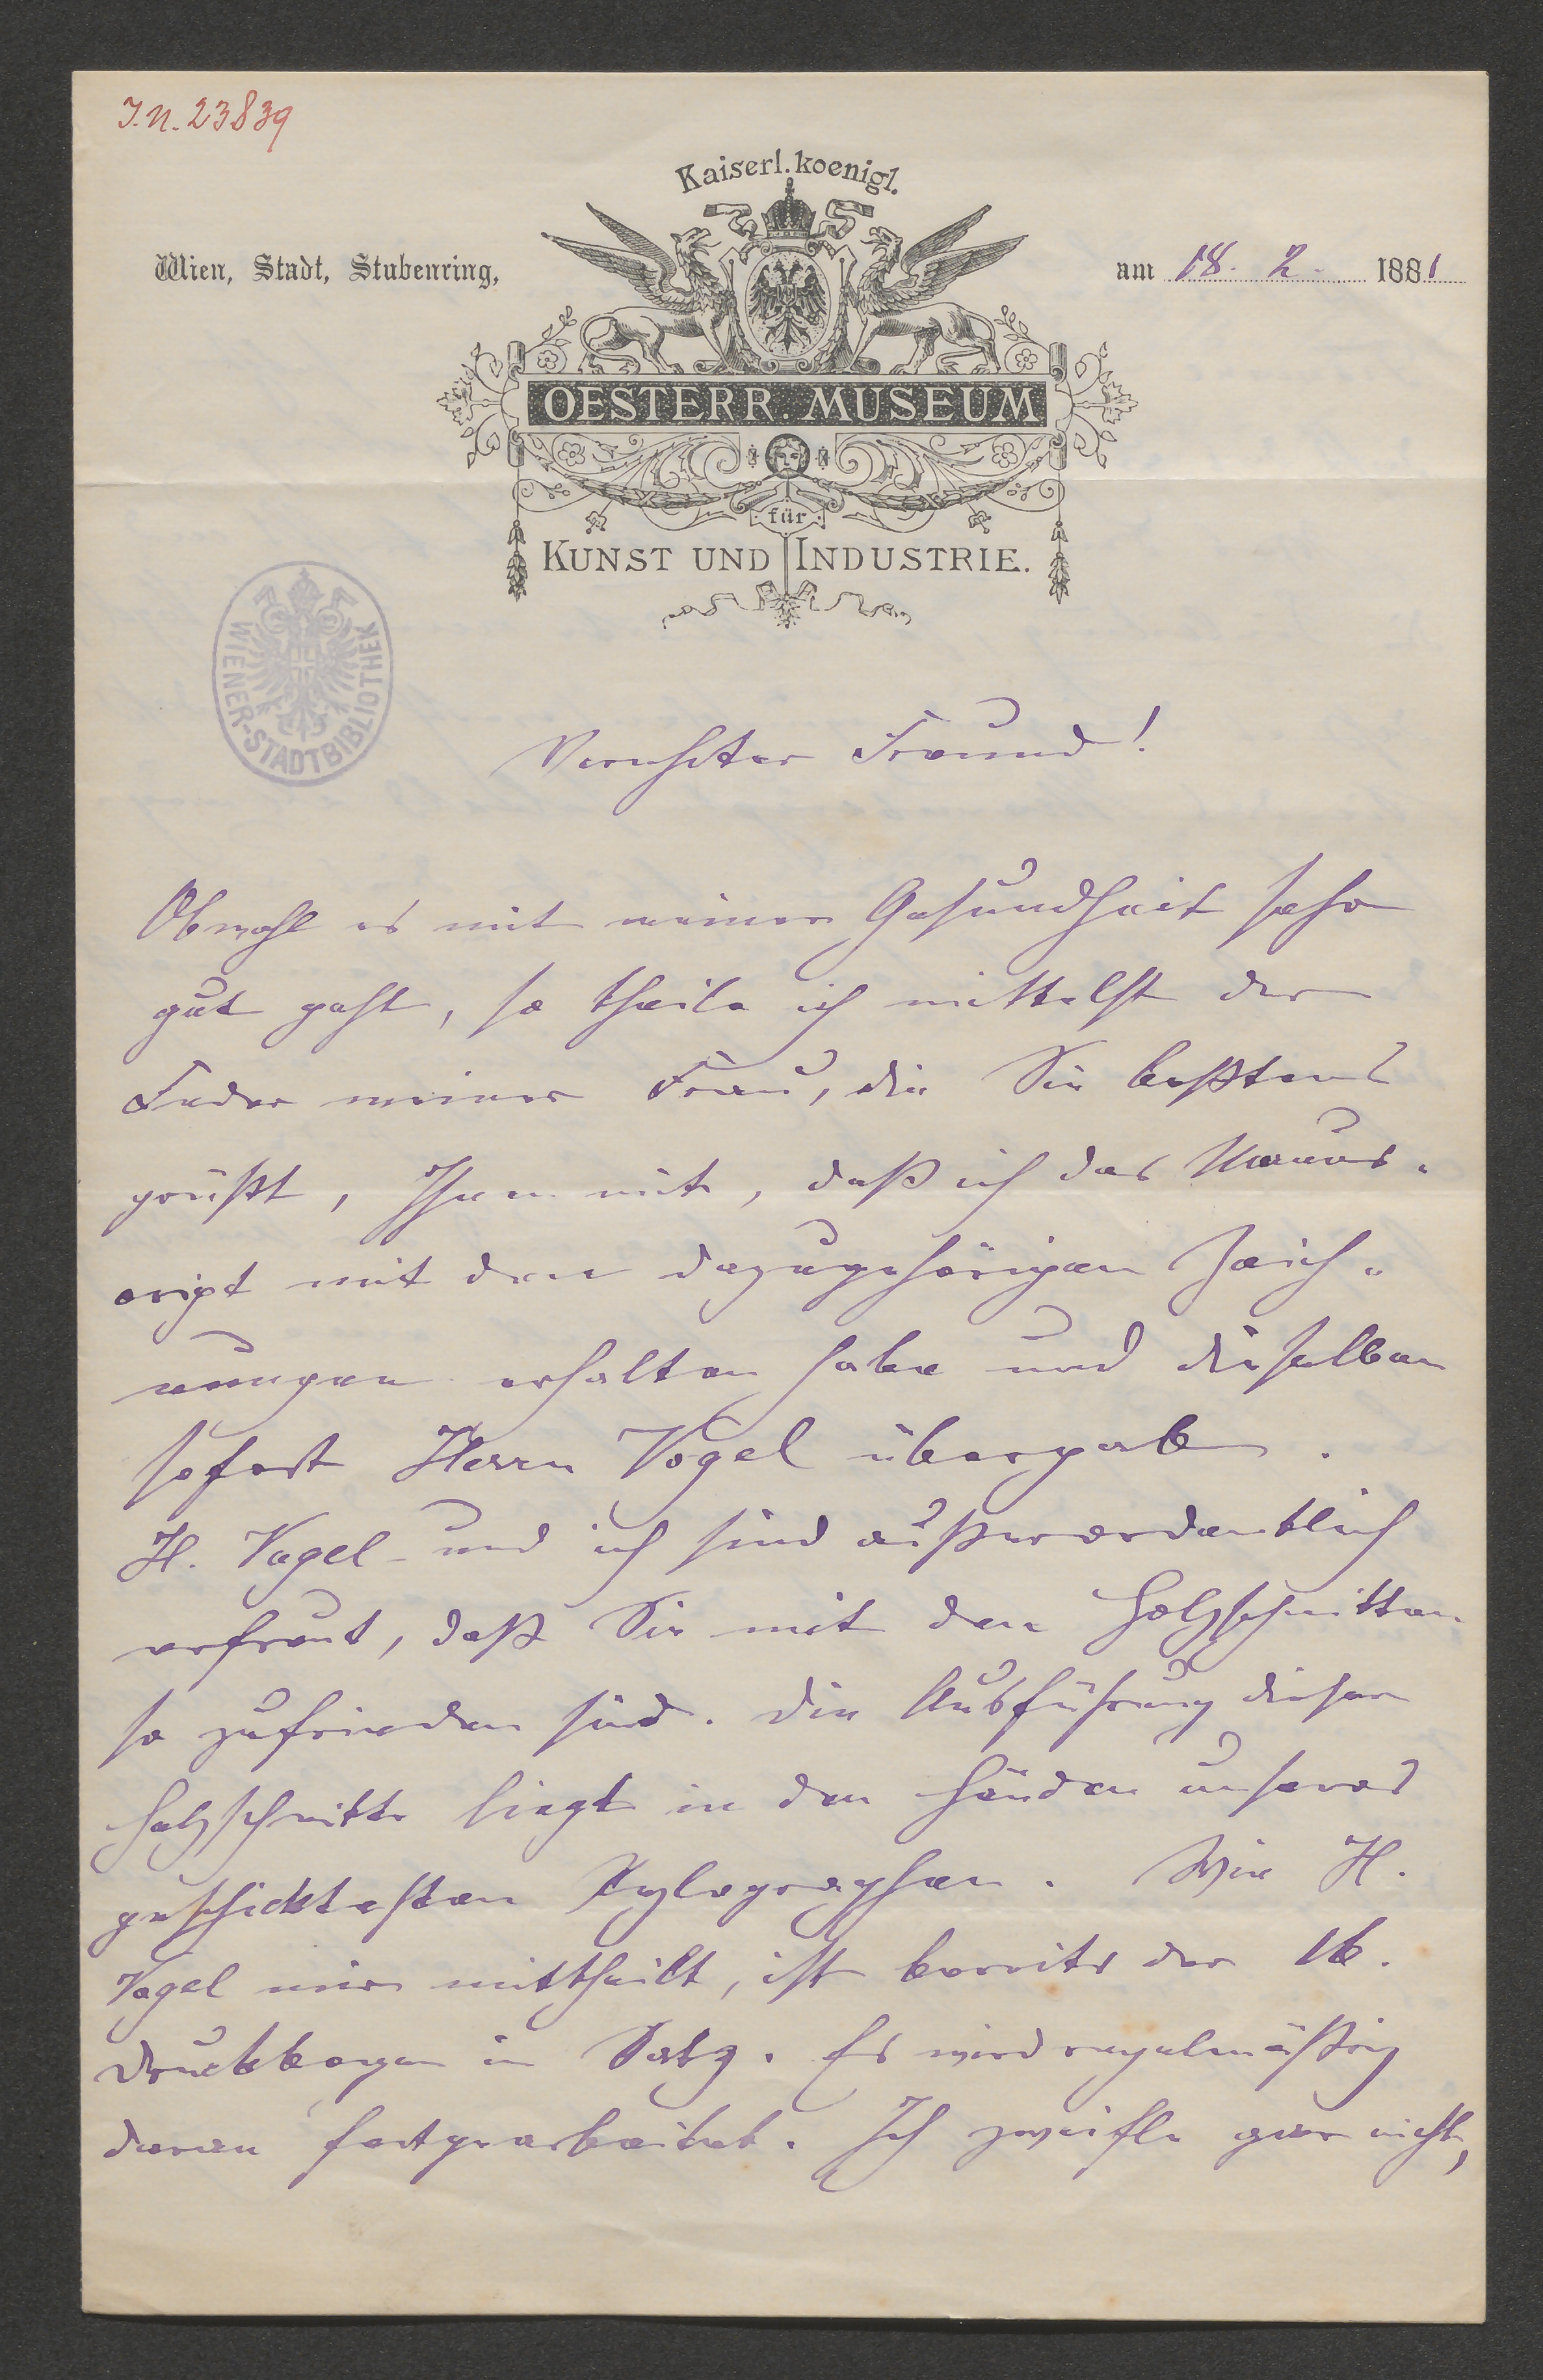 I.N. 23839
Kaiserl. koenigl.
Wien, Stadt, Stubenring,
am 18. 2. 1881
OESTERR. MUSEUM
für
KUNST UND INDUSTRIE.
WIENER-STADTBIBLIOTHEK
Verehrter Freund!
Obwohl es mit meiner Gesundheit sehr
gut geht, so theile ich mittelst der
Feder meiner Frau, die Sie besstens
grüßt, Ihnen mit, daß ich das Manus-
cript mit den dazugehörigen Zeich-
nungen erhalten habe und dieselben
sofort Herrn Vogel übergab.
H. Vogel und ich sind außerordentlich
erfreut, daß Sie mit den Holzschnitten
so zufrieden sind. Die Ausführung dieser
Holzschnitte liegt in den Händen unseres
geschicktesten Xylographen. Wie H.
Vogel mir mittheilt, ist bereits der 16.
Druckbogen in Satz. Es wird regelmäßig
daran fortgearbeitet. Ich zweifle gar nicht,